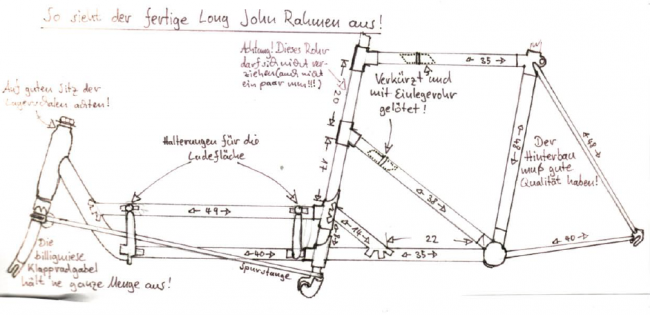 So sieht der fertige Long John Rahmen aus!
Achtung! Dieses Rohr
darf sich nicht ver-
ziehen (auch nicht
ein paar mm!!!)
Auf guten Sitz der
Lagerschalen achten!
Verkürzt und
mit Einlegerohr
gelötet!
Halterungen für die
Ladefläche
Der
Hinterbau
muß gute
Qualität haben!
Die
billigmiese
Klappradgabel
hält 'ne ganze Menge aus!
Spurstange
25
20
17
38
49
14
22
40
35
40